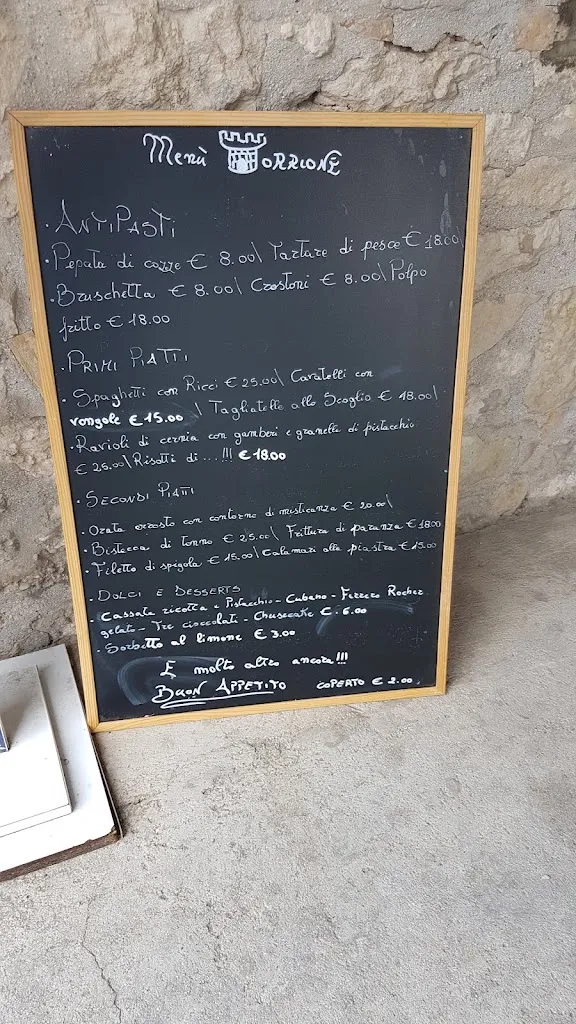 Menù TORRIONE
· ANTIPASTI
· Pepata di cozze € 8.00\ Tartare di pesce € 18.00\
· Bruschetta € 8.00\ Crostoni € 8.00\ Polpo
fritto € 18.00
· PRIMI PIATTI
· Spaghetti con Ricci € 25.00\ Cavatelli con
vongole € 15.00 \ Tagliatelle allo Scoglio € 18.00\
· Ravioli di cernia con gamberi e granella di pistacchio
€ 25.00\ Risotti di ...!!! € 18.00
· SECONDI PIATTI
· Orata arrosto con contorno di misticanza € 20.00\
· Bistecca di Tonno € 25.00\ Frittura di paranza € 18.00
· Filetto di spigola € 15.00\ Calamari alla piastra € 15.00
· DOLCI E DESSERTS
· Cassata ricotta e Pistacchio - Cubano - Ferrero Rocher
gelato - Tre cioccolati - Cheesecake € 6.00
· Sorbetto al limone € 3.00
E molto altro ancora!!!
BUON APPETITO COPERTO € 2.00